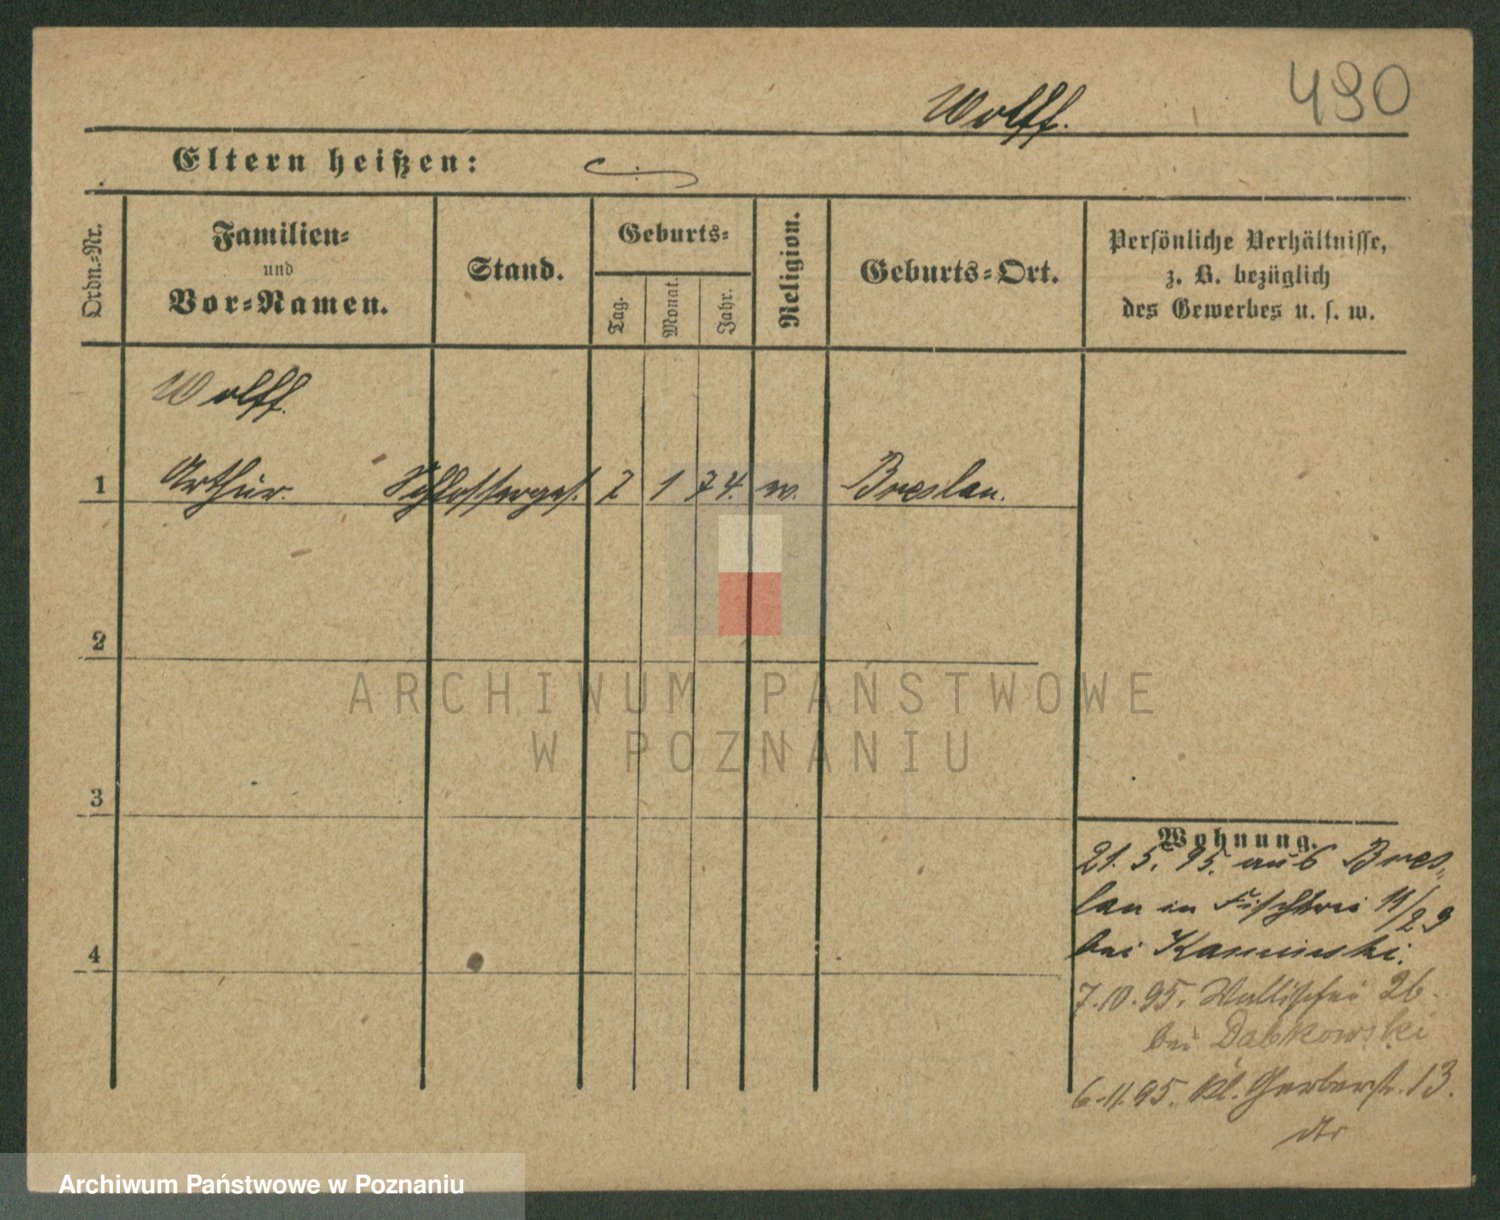 490
Wolff.
Eltern heißen:
Ordn.-Nr.
Familien-
und
Vor-Namen.
Stand.
Geburts-
Tag.
Monat.
Jahr.
Religion.
Geburts-Ort.
Persönliche Verhältnisse,
z. B. bezüglich
des Gewerbes u. s. w.
Wolff.
1 Arthur. Schlosserges. 7 1 74. Breslau.
2
3
4
ARCHIWUM PAŃSTWOWE
W POZNANIU
Wohnung.
21.5.95. aus Bres-
lau in Fischerei 11/29
bei Kaminski.
7.10.95. Wallischei 26.
bei Dabkowski
6.11.95. Kl. Gerberstr. 13.
Archiwum Państwowe w Poznaniu